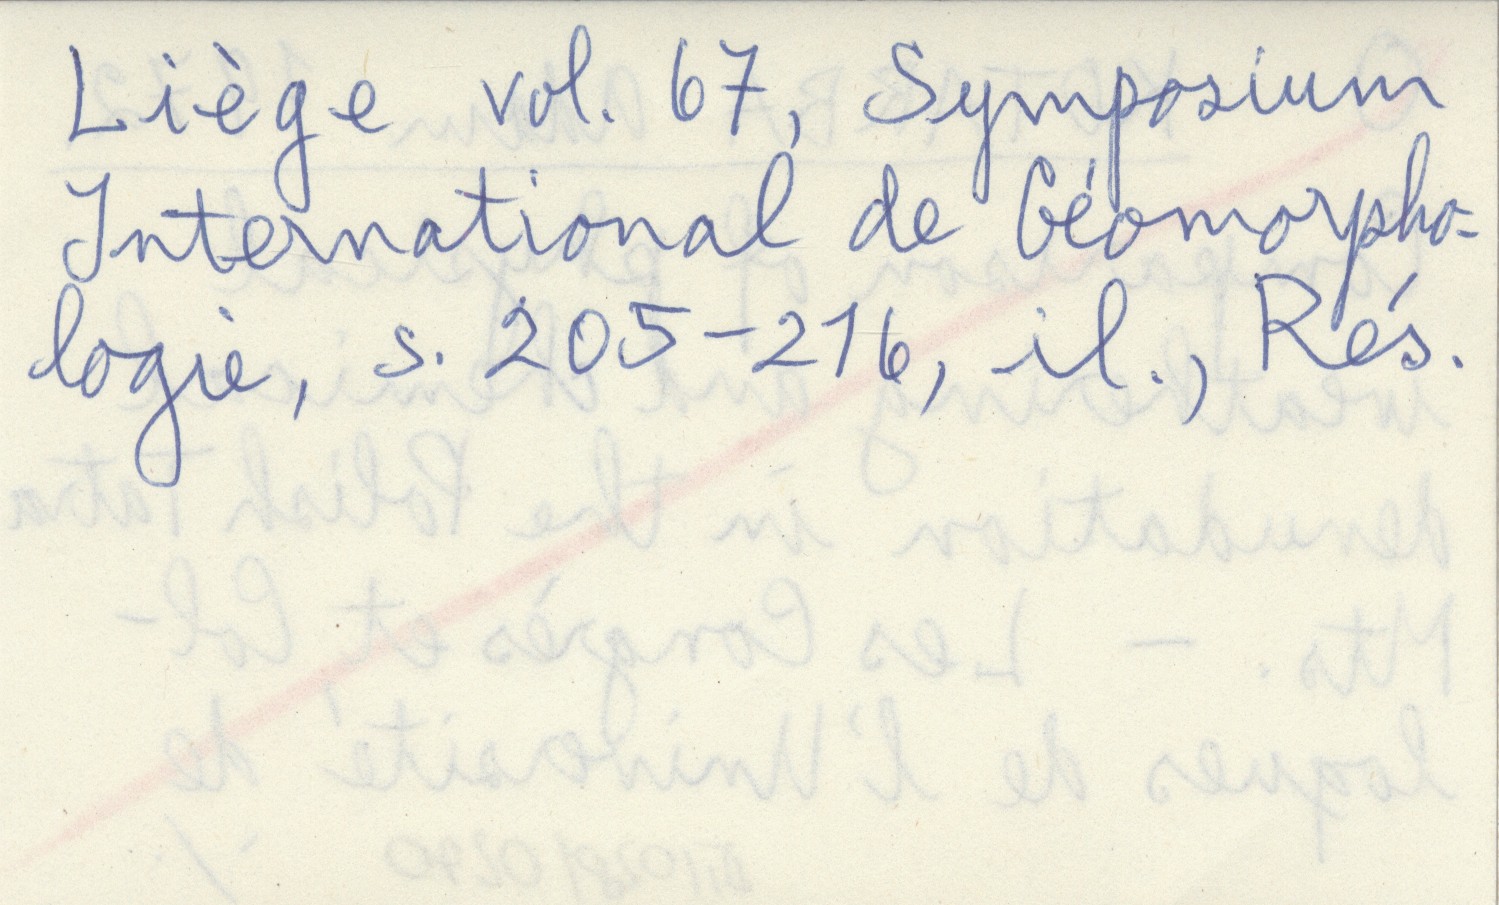 Liège vol. 67, Symposium
International de Géomorpho-
logie, s. 205-216, il., Rés.